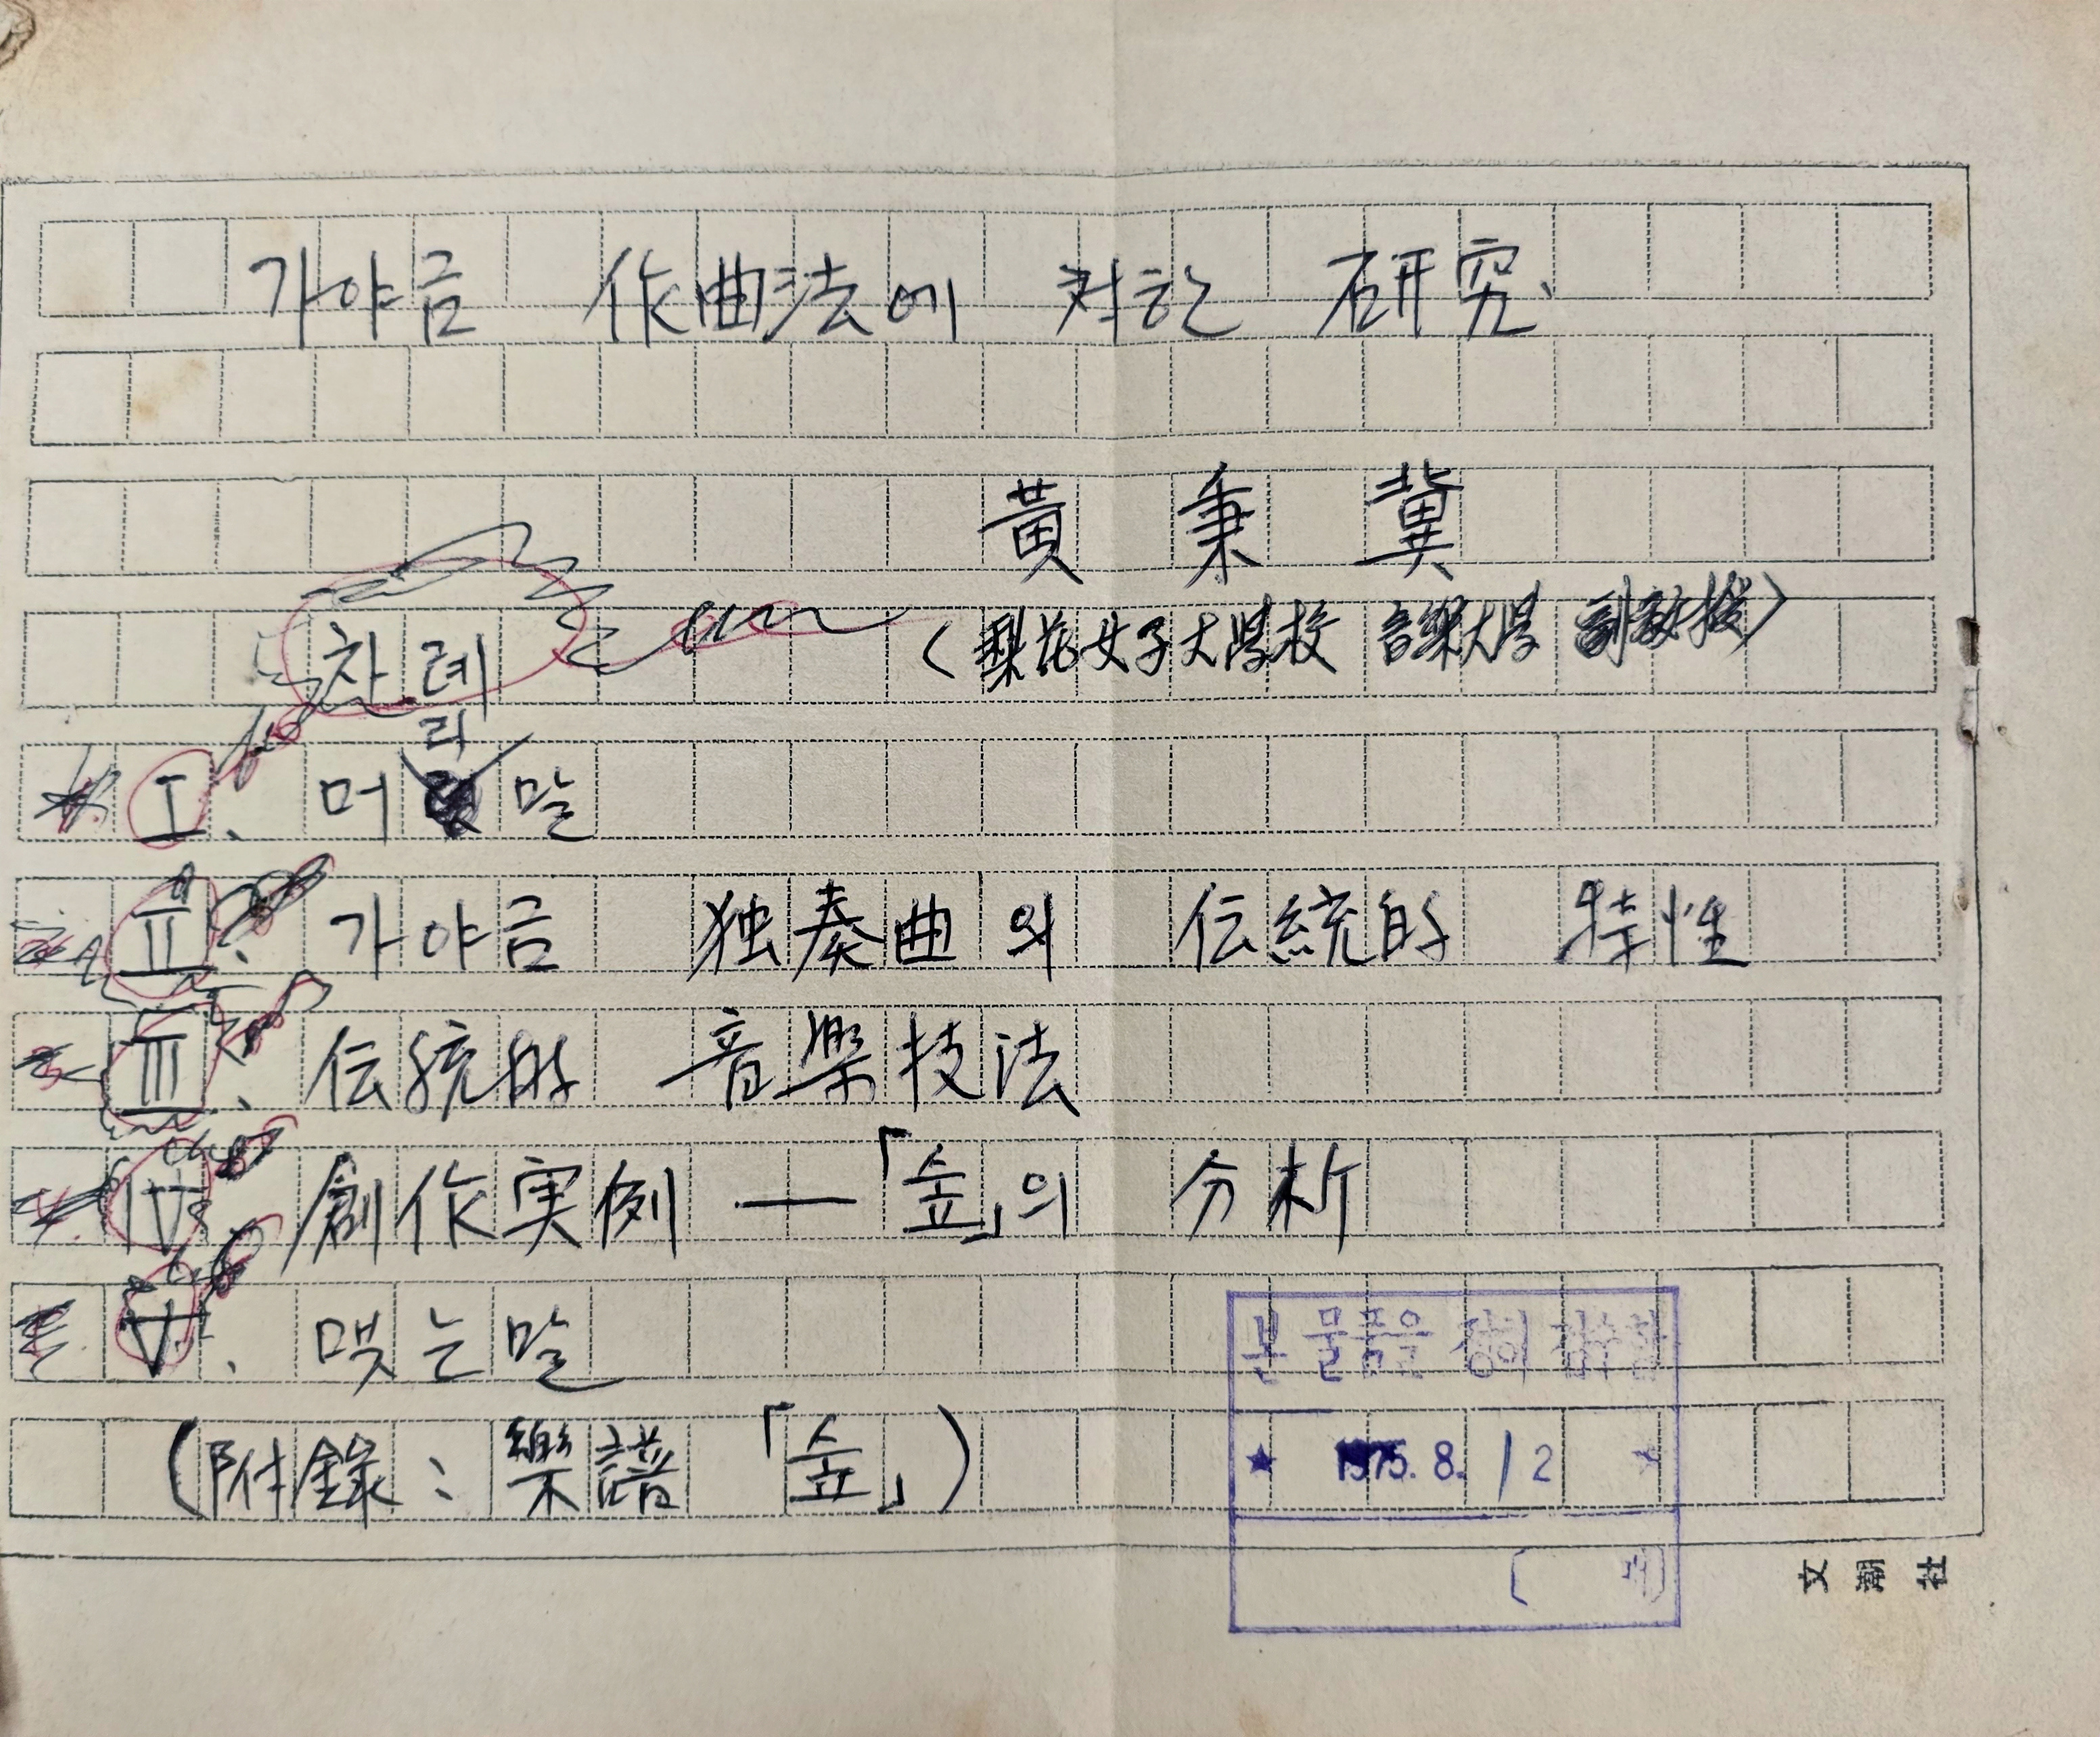 가야금 作曲法에 대한 研究
黃秉冀
(梨花女子大學校 音樂大學 副敎授)
차례
I. 머리말
II. 가야금 独奏曲의 伝統的 特性
III. 伝統的 音樂技法
IV. 創作実例 — 「숲」의 分析
V. 맺는말
(附錄: 樂譜 「숲」)
본 물품을 정히 검수함
★ 1975. 8. 12
文潮社